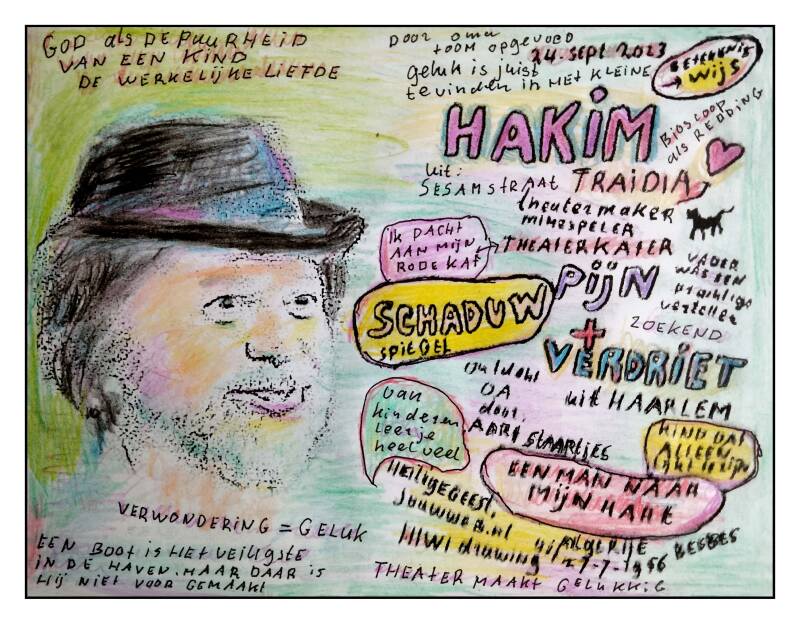 GOD als DE PUURHEID
VAN EEN KIND
DE WERKELIJKE LIEFDE
DOOR oma
toom opgevoed
24. sept 2023
geluk is juist
te vinden in HET KLEINE
BETEKENIS
→ WIJS
HAKIM
Bioscoop
als REDDING
uit:
SESAMSTRAAT TRAIDIA
theatermaker
mimespeler
THEATERKATER
IK DACHT
AAN MIJN
RODE KAT
PIJN
+
VERDRIET
VADER
WAS EEN
prachtige
verteller
ZOEKEND
SCHADUW
SPIEGEL
uit HAARLEM
ontdekt
door
AART Staartjes
van
kinderen
leer je
heel veel
KIND DAT
ALLEEN
EEN MAN NAAR
MIJN HART
HEILIGEGEEST.
Jouwweb.nl
HIWI drawing
uit ALGERIJE
27-7-1956
BESBES
VERWONDERING = GELUK
EEN BOOT IS HET VEILIGSTE
IN DE HAVEN. MAAR DAAR IS
HIJ NIET VOOR GEMAAKT
THEATER MAAKT GELUKKIG